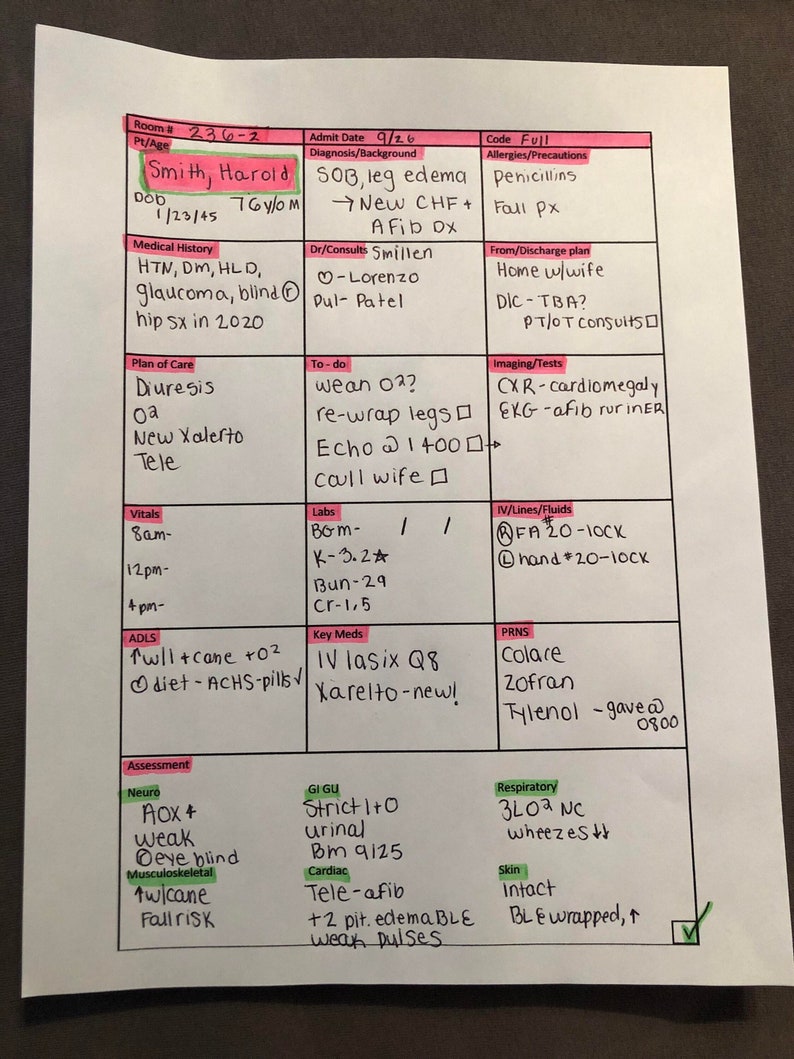 Room # 236-2
Admit Date 9/26
Code Full
Pt/Age
Smith, Harold
DOB 76 y/o M
1/23/45
Diagnosis/Background
SOB, leg edema
→ New CHF +
AFib Dx
Allergies/Precautions
Penicillins
Fall px
Medical History
HTN, DM, HLD,
glaucoma, blind Ⓡ
hip sx in 2020
Dr/Consults Smillen
♡ - Lorenzo
Pul - Patel
From/Discharge plan
Home w/wife
D/C - TBA?
PT/OT consults □
Plan of Care
Diuresis
O2
New Xalerto
Tele
To - do
wean O2?
re-wrap legs □
Echo @ 1400 □→
call wife □
Imaging/Tests
CXR - cardiomegaly
EKG - afib rvr in ER
Vitals
8am-
12pm-
4pm-
Labs
BGM- / /
K-3.2☆
Bun-29
Cr-1.5
IV/Lines/Fluids
Ⓡ FA #20-lock
Ⓛ hand #20-lock
ADLS
↑ w/1 + cane + O2
♡ diet - ACHS - pills √
Key Meds
IV lasix Q8
Xarelto - new!
PRNS
Colace
Zofran
Tylenol - gave @
0800
Assessment
Neuro
AOX4
weak
eye blind
GI GU
Strict I+O
urinal
Bm 9/25
Respiratory
3L O2 NC
wheezes ↓↓
Musculoskeletal
↑ w/cane
Fall risk
Cardiac
Tele - afib
+2 pit. edema BLE
weak pulses
Skin
Intact
BLE wrapped, ↑
✓